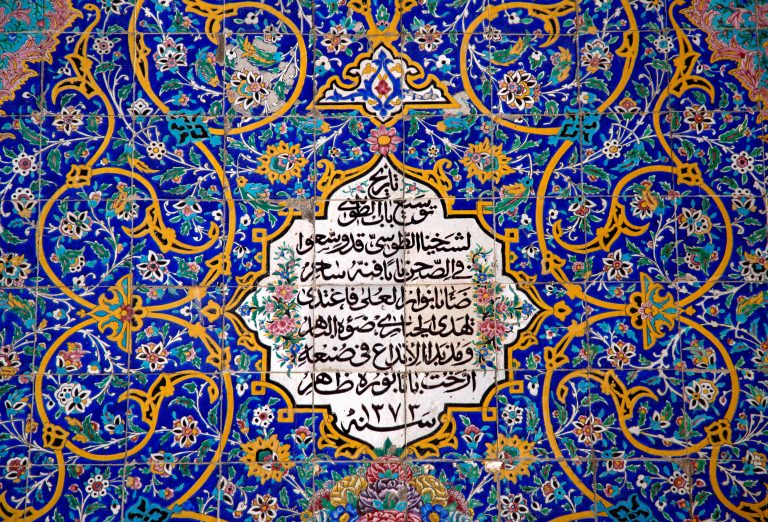 تاريخ
توسيع باب الطوسي
لشيخنا الطوسي قد وسعوا
في الصحن بابا فنه ساحر
ضاء بانوار العلى فاغتدى
يهدي الحيارى ضوءه الزاهر
ومذ بدا الابداع في صنعه
ارخت بابا نوره ظاهر
سنة ١٣٧٣